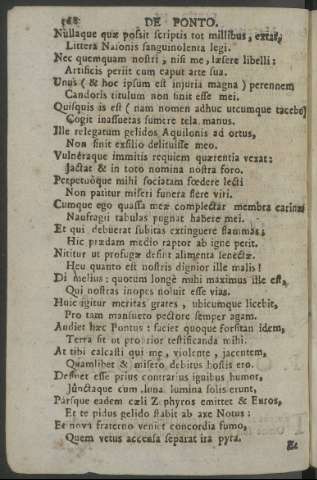 168 DE PONTO.
Nullaque quæ possit scriptis tot millibus, extat,
Littera Nasonis sanguinolenta legi.
Nec quemquam nostri, nisi me, læsere libelli:
Artificis periit cum caput arte sua.
Unus (& hoc ipsum est injuria magna) perennem
Candoris titulum non sinit esse mei.
Quisquis is est (nam nomen adhuc utcumque tacebo)
Cogit inassuetas sumere tela manus.
Ille relegatum gelidos Aquilonis ad ortus,
Non sinit exsilio delituisse meo.
Vulneraque immitis requiem quærentia vexat:
Jactat & in toto nomina nostra foro.
Perpetuoque mihi sociatam fœdere lecti
Non patitur miseri funera flere viri.
Cumque ego quassa meæ complectar membra carinæ
Naufragii tabulas pugnat habere mei.
Et qui debuerat subitas extinguere flammas;
Hic prædam medio raptor ab igne perit.
Nititur ut profugæ desint alimenta senectæ.
Heu quanto est nostris dignior ille malis!
Di melius: quorum longè mihi maximus ille est,
Qui nostras inopes noluit esse vias.
Huic igitur meritas grates, ubicumque licebit,
Pro tam mansueto pectore semper agam.
Audiet hæc Pontus: faciet quoque forsitan idem,
Terra sit ut proprior testificanda mihi.
At tibi calcasti qui me, violente, jacentem,
Quamlibet & misero debitus hostis ero.
Desinet esse prius contrarius ignibus humor,
Junctaque cum luna lumina solis erunt,
Parsque eadem cæli Zephyros emittet & Euros,
Et tepidus gelido flabit ab axe Notus:
Et nova fraterno veniet concordia fumo,
Quem vetus accensa separat ira pyra.
Et